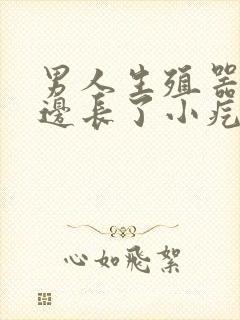 男人生殖器
邊長了小疙
心如飛絮